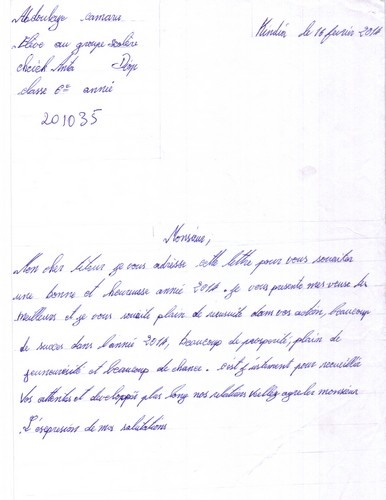 Abdoulaye Camara
Elève au groupe scolère
cheick Anta Diop
classe 6e année
201035
le 16 fevrier
Monsieur,
Mon cher tuteur je vous adresse cette lettre pour vous souaiter
une bonne et heureuse année 2014. je vous presente mes veux les
meilleurs et je vous souaite plain de reussite dans vos action, beaucoup
de succes dans l'année 2014, beaucoup de prosperité, plain de
et beaucoup de chance. c'est justement pour
vos attentes et developpés plus long nos relation agreler monsieur
L'espression de mes salutations